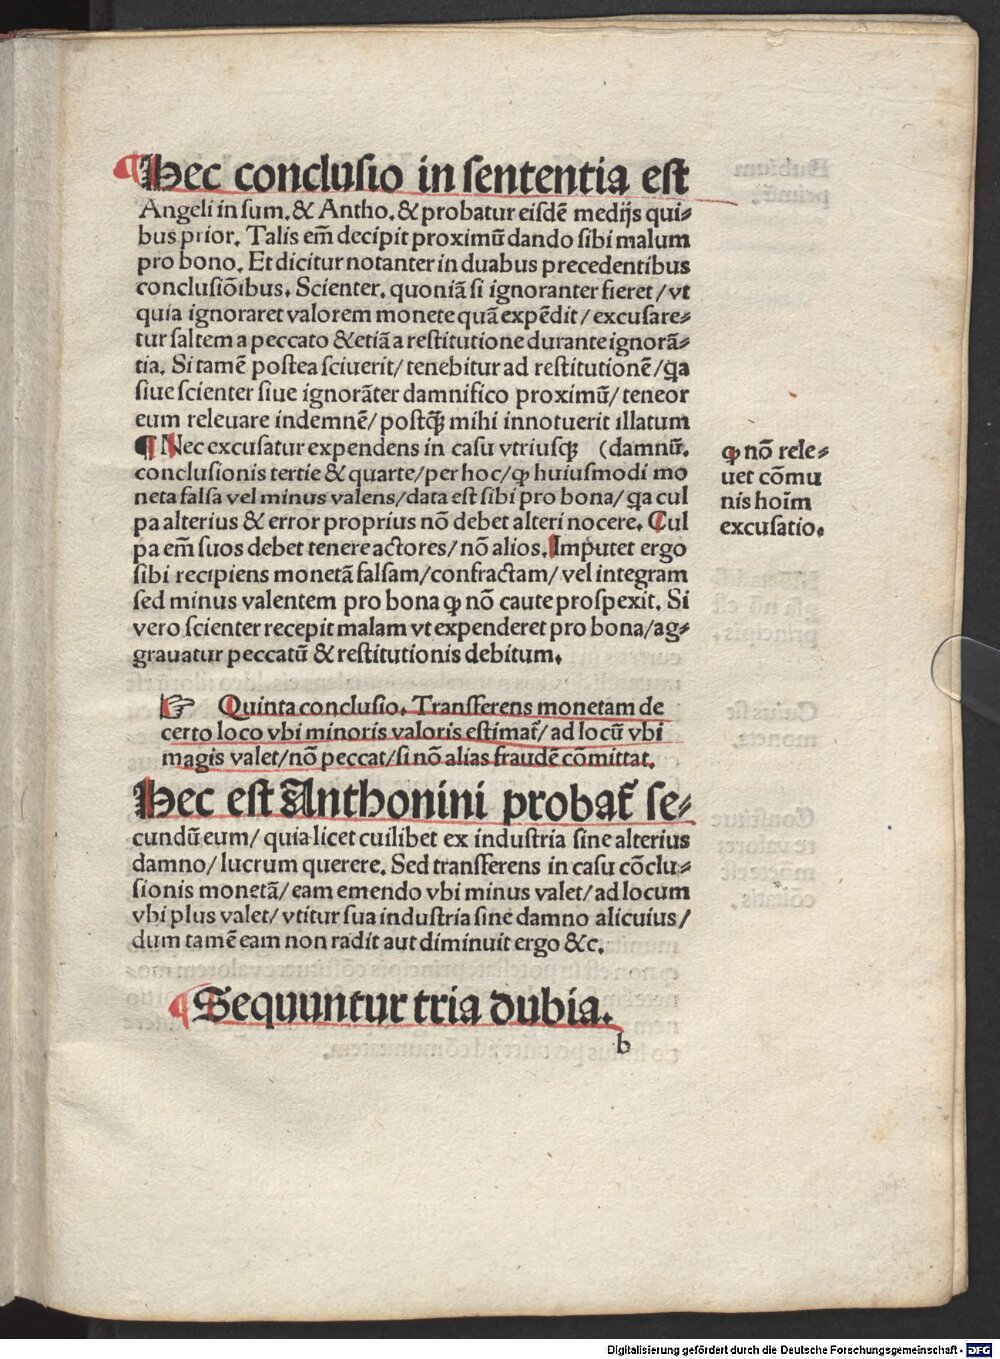 ¶ Hec conclusio in sententia est
Angeli in sum. & Antho. & probatur eisdē medijs qui⸗
bus prior. Talis em̄ decipit proximū dando sibi malum
pro bono. Et dicitur notanter in duabus precedentibus
conclusiōibus. Scienter. quoniā si ignoranter fieret / vt
quia ignoraret valorem monete quā expēdit / excusare⸗
tur saltem a peccato & etiā a restitutione durante ignorā⸗
tia. Si tamē postea sciuerit / tenebitur ad restitutionē / q̄a
siue scienter siue ignorāter damnifico proximū / teneor
eum releuare indemnē / postq̄ꝫ mihi innotuerit illatum
¶ Nec excusatur expendens in casu vtriusqꝫ (damnū.
conclusionis tertie & quarte / per hoc / ꝙ huiusmodi mo
neta falsa vel minus valens / data est sibi pro bona / q̄a cul
pa alterius & error proprius nō debet alteri nocere. Cul
pa em̄ suos debet tenere actores / nō alios. Imputet ergo
sibi recipiens monetā falsam / confractam / vel integram
sed minus valentem pro bona ꝙ nō caute prospexit. Si
vero scienter recepit malam vt expenderet pro bona / ag⸗
grauatur peccatū & restitutionis debitum.
ꝙ nō rele⸗
uet cōmu
nis hoīm
excusatio.
☞ Quinta conclusio. Transferens monetam de
certo loco vbi minoris valoris estimat᷑ / ad locū vbi
magis valet / nō peccat / si nō alias fraudē cōmittat.
Hec est Anthonini probat᷑ se⸗
cundū eum / quia licet cuilibet ex industria sine alterius
damno / lucrum querere. Sed transferens in casu cōclu⸗
sionis monetā / eam emendo vbi minus valet / ad locum
vbi plus valet / vtitur sua industria sine damno alicuius /
dum tamē eam non radit aut diminuit ergo &c.
¶ Sequuntur tria dubia.
b
Digitalisierung gefördert durch die Deutsche Forschungsgemeinschaft - DFG